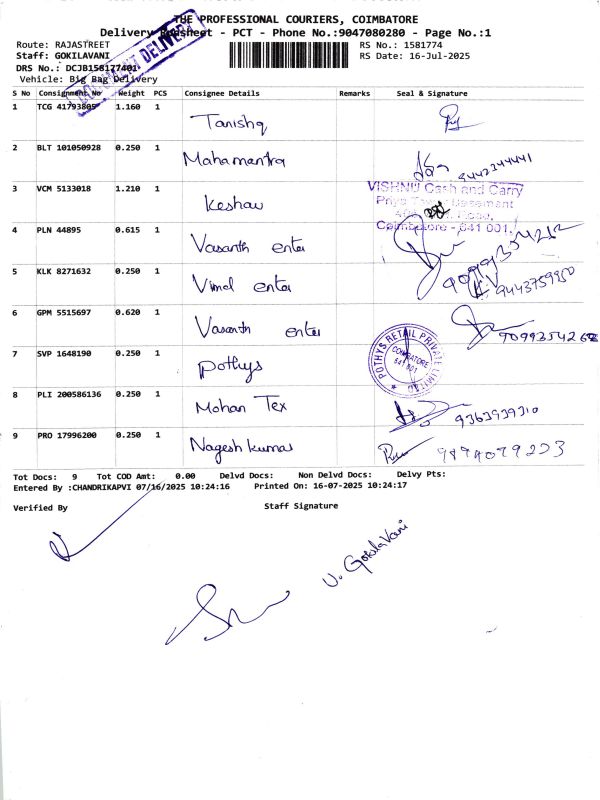 THE PROFESSIONAL COURIERS, COIMBATORE
Delivery Runsheet - PCT - Phone No.:9047080280 - Page No.:1
Route: RAJASTREET
RS No.: 1581774
Staff: GOKILAVANI
RS Date: 16-Jul-2025
DRS No.: DCJB158177401
Vehicle: Big Bag Delivery
DOCUMENT DELIVERY
S No Consignment No Weight PCS Consignee Details Remarks Seal & Signature
1 TCG 41793805 1.160 1 Tanishq
2 BLT 101050928 0.250 1 Mahamantra 9442344441
3 VCM 5133018 1.210 1 Keshav
VISHNU Cash and Carry
Coimbatore - 641 001.
4 PLN 44895 0.615 1 Vasanth enter
5 KLK 8271632 0.250 1 Vimel enter 9443759950
6 GPM 5515697 0.620 1 Vasanth enter
7 SVP 1648190 0.250 1 Pothys
POTHYS RETAIL PRIVATE LIMITED
COIMBATORE
641 001
8 PLI 200586136 0.250 1 Mohan Tex 9363939310
9 PRO 17996200 0.250 1 Nagesh kumar
Tot Docs: 9 Tot COD Amt: 0.00 Delvd Docs: Non Delvd Docs: Delvy Pts:
Entered By :CHANDRIKAPVI 07/16/2025 10:24:16 Printed On: 16-07-2025 10:24:17
Verified By Staff Signature
U. GokilaVani